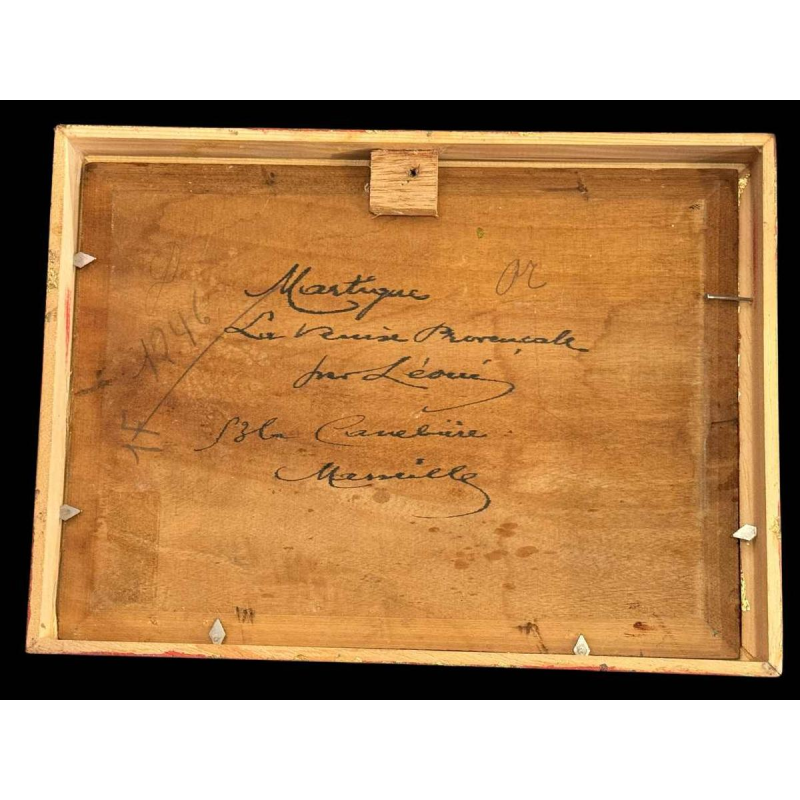 Martigue
La Venise Provençale
par Léoni
53 la Canebière
Marseille
1246
15